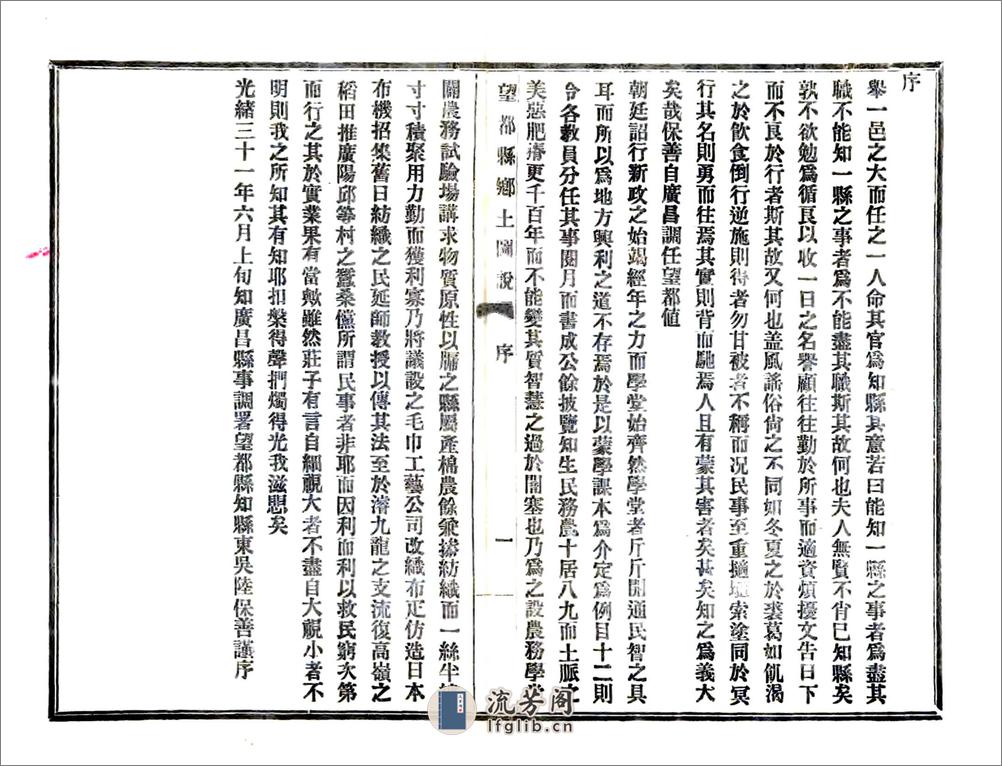 序
舉一邑之大而任之一人命其官為知縣其意若曰能知一縣之事者為盡其
職不能知一縣之事者為不能盡其職斯其故何也夫人無賢不肖已知縣矣
孰不欲勉為循良以收一日之名譽顧往往勤於所事而適資煩擾文告日下
而不良於行者斯其故又何也盖風謠俗尙之不同如冬夏之於裘葛如飢渴
之於飲食倒行逆施則得者勿甘被者不稱而况民事至重擿埴索塗同於冥
行其名則勇而往焉其實則背而馳焉人且有蒙其害者矣甚矣知之為義大
矣哉保善自廣昌調任望都値
朝廷詔行新政之始竭經年之力而學堂始齊然學堂者斤斤開通民智之具
耳而所以為地方興利之道不存焉於是以蒙學課本為介定為例目十二則
令各敎員分任其事閱月而書成公餘披覽知生民務農十居八九而土脈之
美惡肥瘠更千百年而不能變其質智慧之過於閉塞也乃為之設農務學堂
望都縣鄉土圖說 序 一
關農務試驗場講求物質原性以牖之縣屬產棉農餘兼操紡織而一絲半縷
寸寸積聚用力勤而獲利寡乃將議設之毛巾工藝公司改織布疋仿造日本
布機招集舊日紡織之民延師教授以傳其法至於濬九龍之支流復高嶺之
稻田推廣陽邱等村之蠶桑儻所謂民事者非耶而因利而利以救民窮次第
而行之其於實業果有當歟雖然莊子有言自細視大者不盡自大視小者不
明則我之所知其有知耶扣槃得聲捫燭得光我滋恧矣
光緒三十一年六月上旬知廣昌縣事調署望都縣知縣東吳陸保善謹序
流芳阁
lfglib.cn